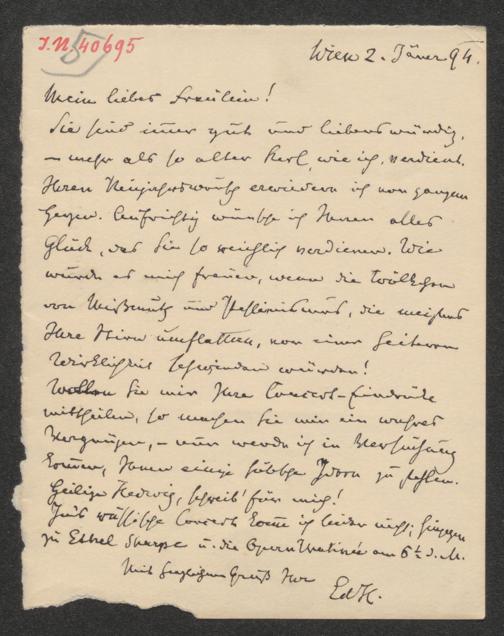 I.N. 40695
5
Wien 2. Jäner 94.
Mein liebes Fräulein!
Sie sind im̅er gut und liebenswürdig,
– mehr als so alter Kerl, wie ich, verdient.
Ihren Neujahrswunsch erwiedern ich von ganzem
Herzen. Aufrichtig wünsche ich Ihnen alles
Glück, das Sie so reichlich verdienen. Wie
würde es mich freuen, wenn die Wölkchen
von Mißmuth und Pessimismus, die meistens
Ihre Stirn umflattern, von einer heiteren
Wirklichkeit schwinden würden!
Wollen Sie mir Ihre Concert-Eindrücke
mittheilen, so machen Sie mir ein wahres
Vergnügen, – nun werde ich in Versuchung
kom̅en, Ihnen einige hübsche Ideen zu stehlen.
Heilige Hedwig, schreib' für mich!
Ins russische Concert kom̅e ich leider nicht; hingegen
zu Ethel Sharpe u. die Opern Matinée am 6t d. M.
Mit herzlichem Gruß Ihr
Ed H.